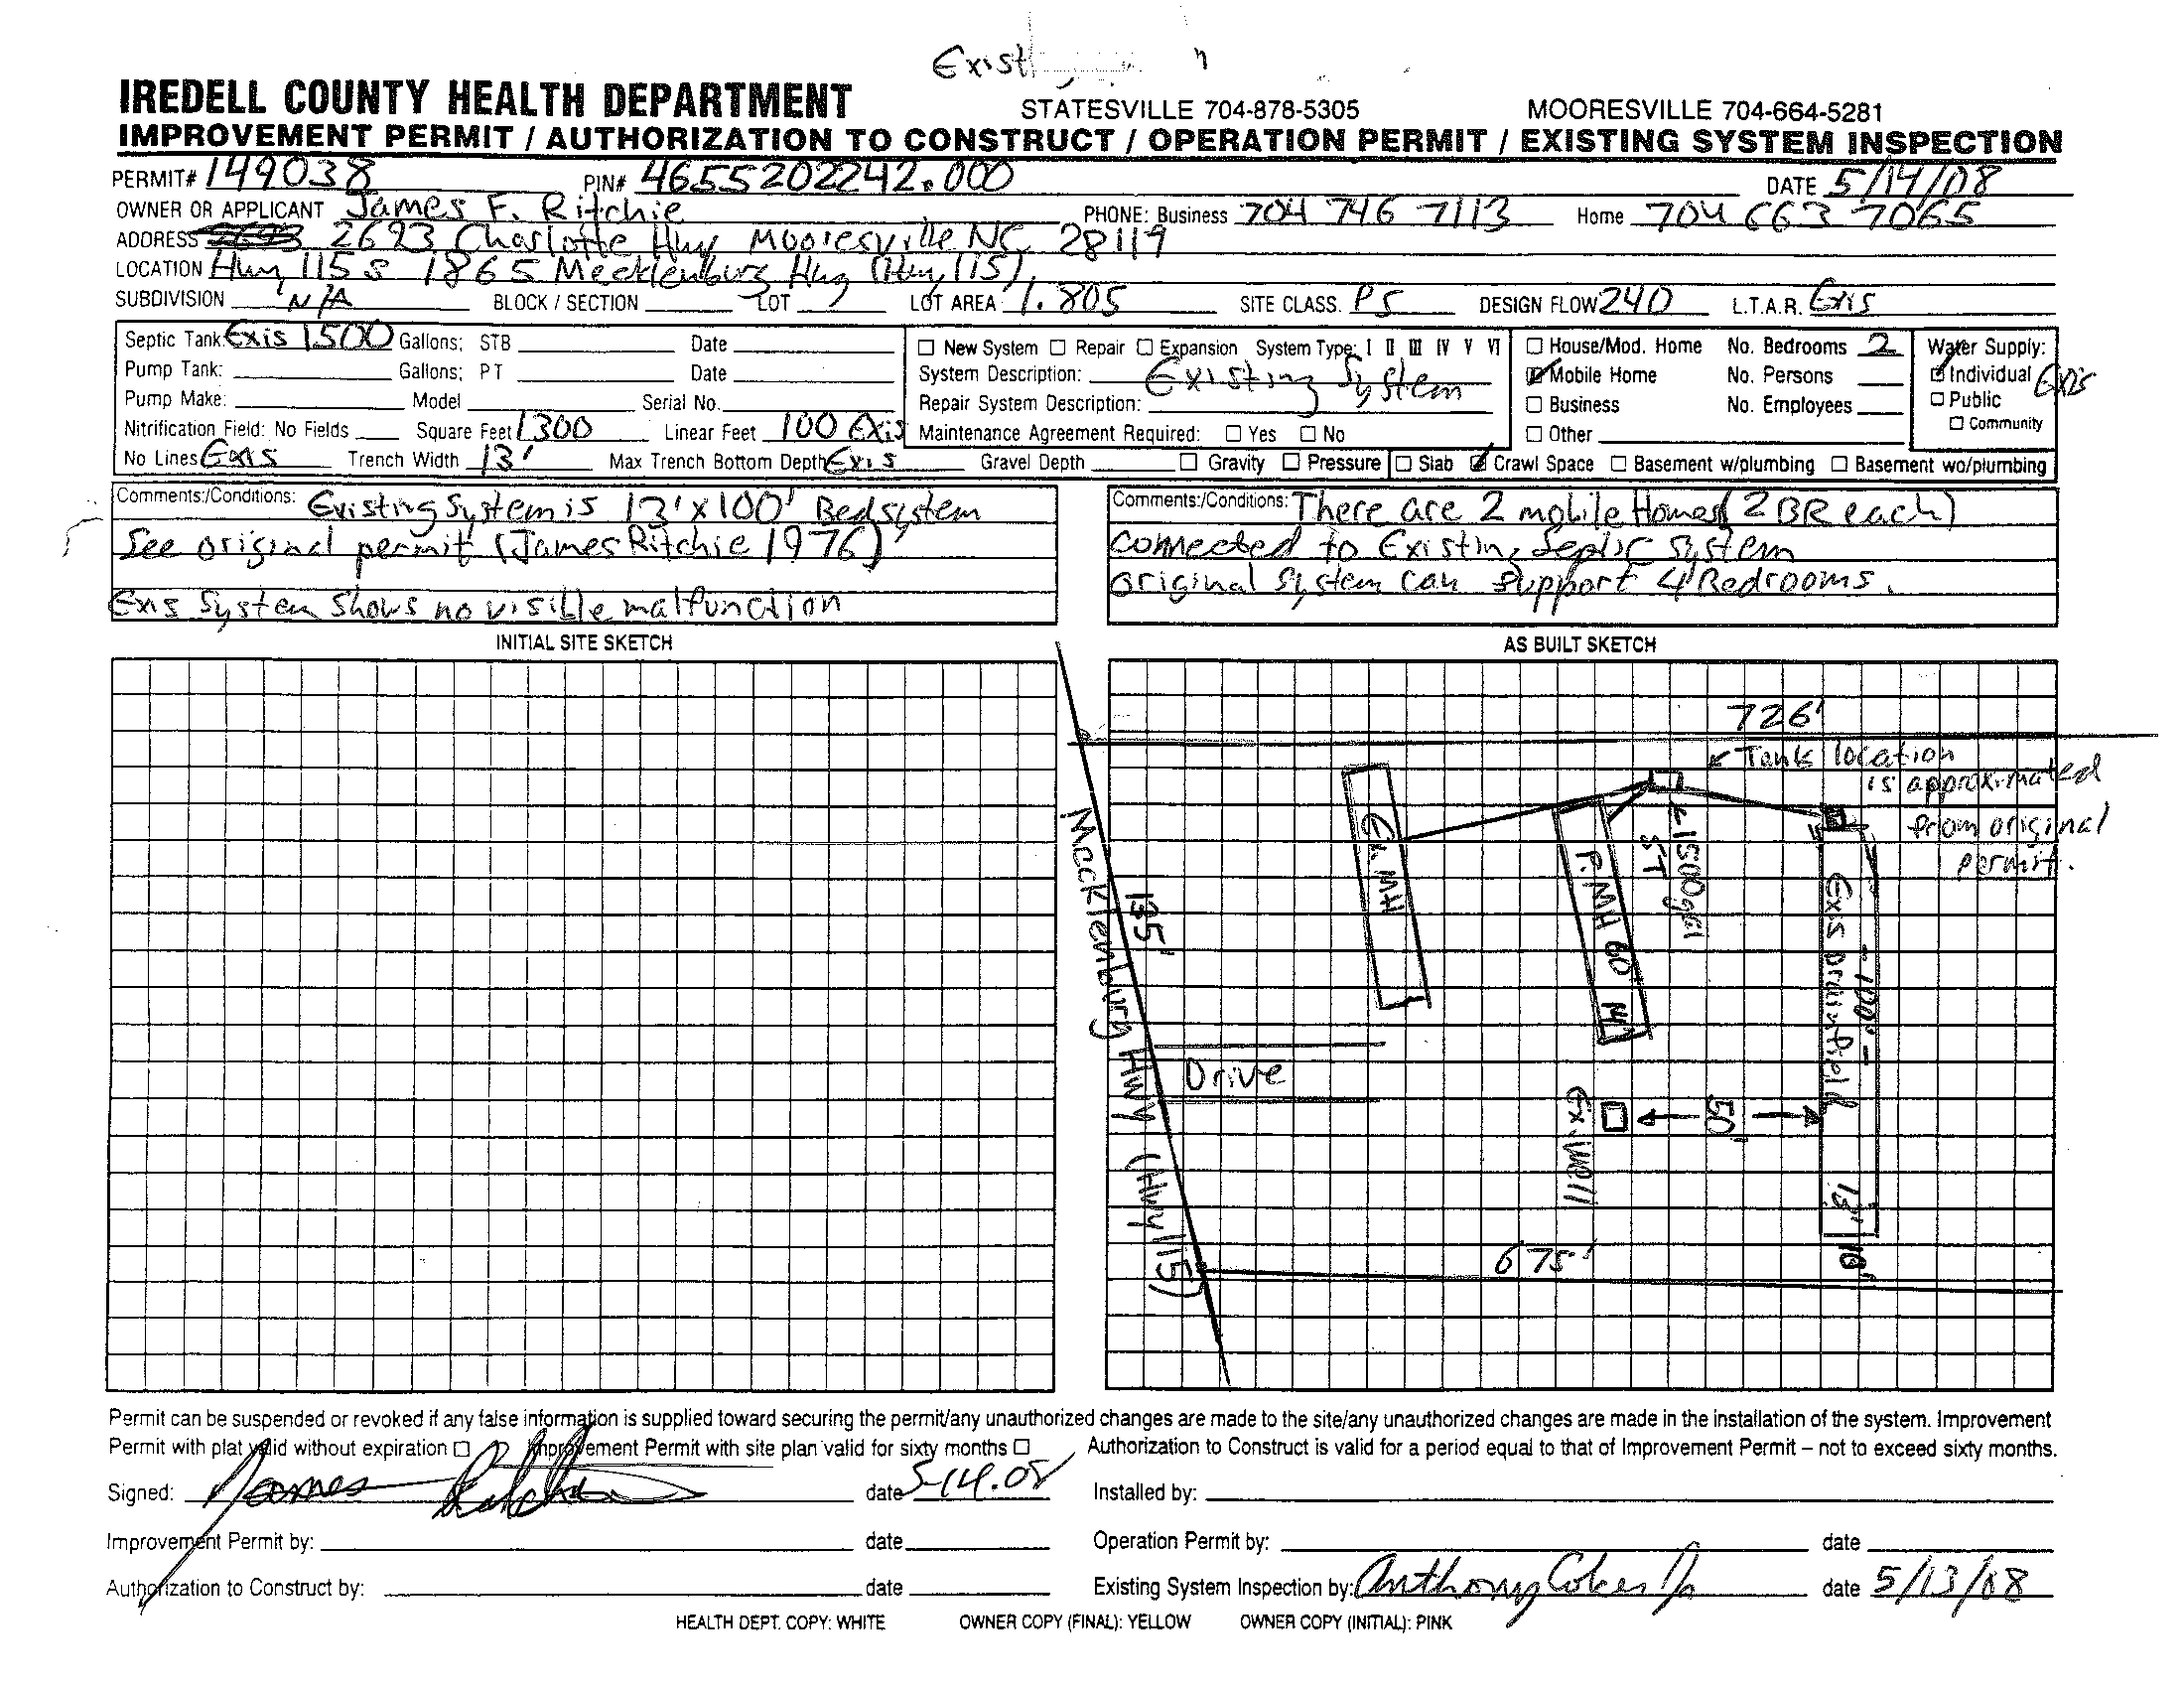 Exist
IREDELL COUNTY HEALTH DEPARTMENT STATESVILLE 704-878-5305 MOORESVILLE 704-664-5281
IMPROVEMENT PERMIT / AUTHORIZATION TO CONSTRUCT / OPERATION PERMIT / EXISTING SYSTEM INSPECTION
PERMIT# 149038 PIN# 4655202242.000 DATE 5/14/08
OWNER OR APPLICANT James F. Ritchie PHONE: Business 704 746 7113 Home 704 663 7065
ADDRESS 2693 Charlotte Hwy Mooresville NC 28119
LOCATION Hwy 115 S 1865 Mecklenburg Hwy (Hwy 115)
SUBDIVISION N/A BLOCK / SECTION LOT LOT AREA 1.805 SITE CLASS. PS DESIGN FLOW 240 L.T.A.R. Exis
Septic Tank: Exis 1500 Gallons; STB Date
Pump Tank: Gallons; PT Date
Pump Make: Model Serial No.
Nitrification Field: No Fields Square Feet 1300 Linear Feet 100 Exis
No Lines Exis Trench Width 13' Max Trench Bottom Depth Exis Gravel Depth ☐ Gravity ☐ Pressure
☐ New System ☐ Repair ☐ Expansion System Type: I II III IV V VI
System Description: Existing System
Repair System Description:
Maintenance Agreement Required: ☐ Yes ☐ No
☐ House/Mod. Home No. Bedrooms 2
☑ Mobile Home No. Persons
☐ Business No. Employees
☐ Other
☐ Slab ☑ Crawl Space ☐ Basement w/plumbing ☐ Basement wo/plumbing
Water Supply:
☑ Individual Exis
☐ Public
☐ Community
Comments:/Conditions: Existing System is 13'x100' Bed system
See original permit (James Ritchie 1976)
Exis System Shows no visible malfunction
Comments:/Conditions: There are 2 mobile Homes (2 BR each)
connected to Existing Septic System
original System can support 4 Bedrooms.
INITIAL SITE SKETCH
AS BUILT SKETCH
726'
Tank location
is approximated
from original
permit.
Mecklenburg Hwy (Hwy 115)
135'
Ex. MH
P. MH 60
14
1500 gal
ST
Exis Drainfield
100'
13'
10'
Drive
Ex. well
50'
675'
Permit can be suspended or revoked if any false information is supplied toward securing the permit/any unauthorized changes are made to the site/any unauthorized changes are made in the installation of the system. Improvement
Permit with plat valid without expiration ☐ Improvement Permit with site plan valid for sixty months ☐ Authorization to Construct is valid for a period equal to that of Improvement Permit – not to exceed sixty months.
Signed: James Ritchie date 5-14.08 Installed by:
Improvement Permit by: date Operation Permit by: date
Authorization to Construct by: date Existing System Inspection by: Anthony Coker Jr date 5/13/08
HEALTH DEPT. COPY: WHITE OWNER COPY (FINAL): YELLOW OWNER COPY (INITIAL): PINK